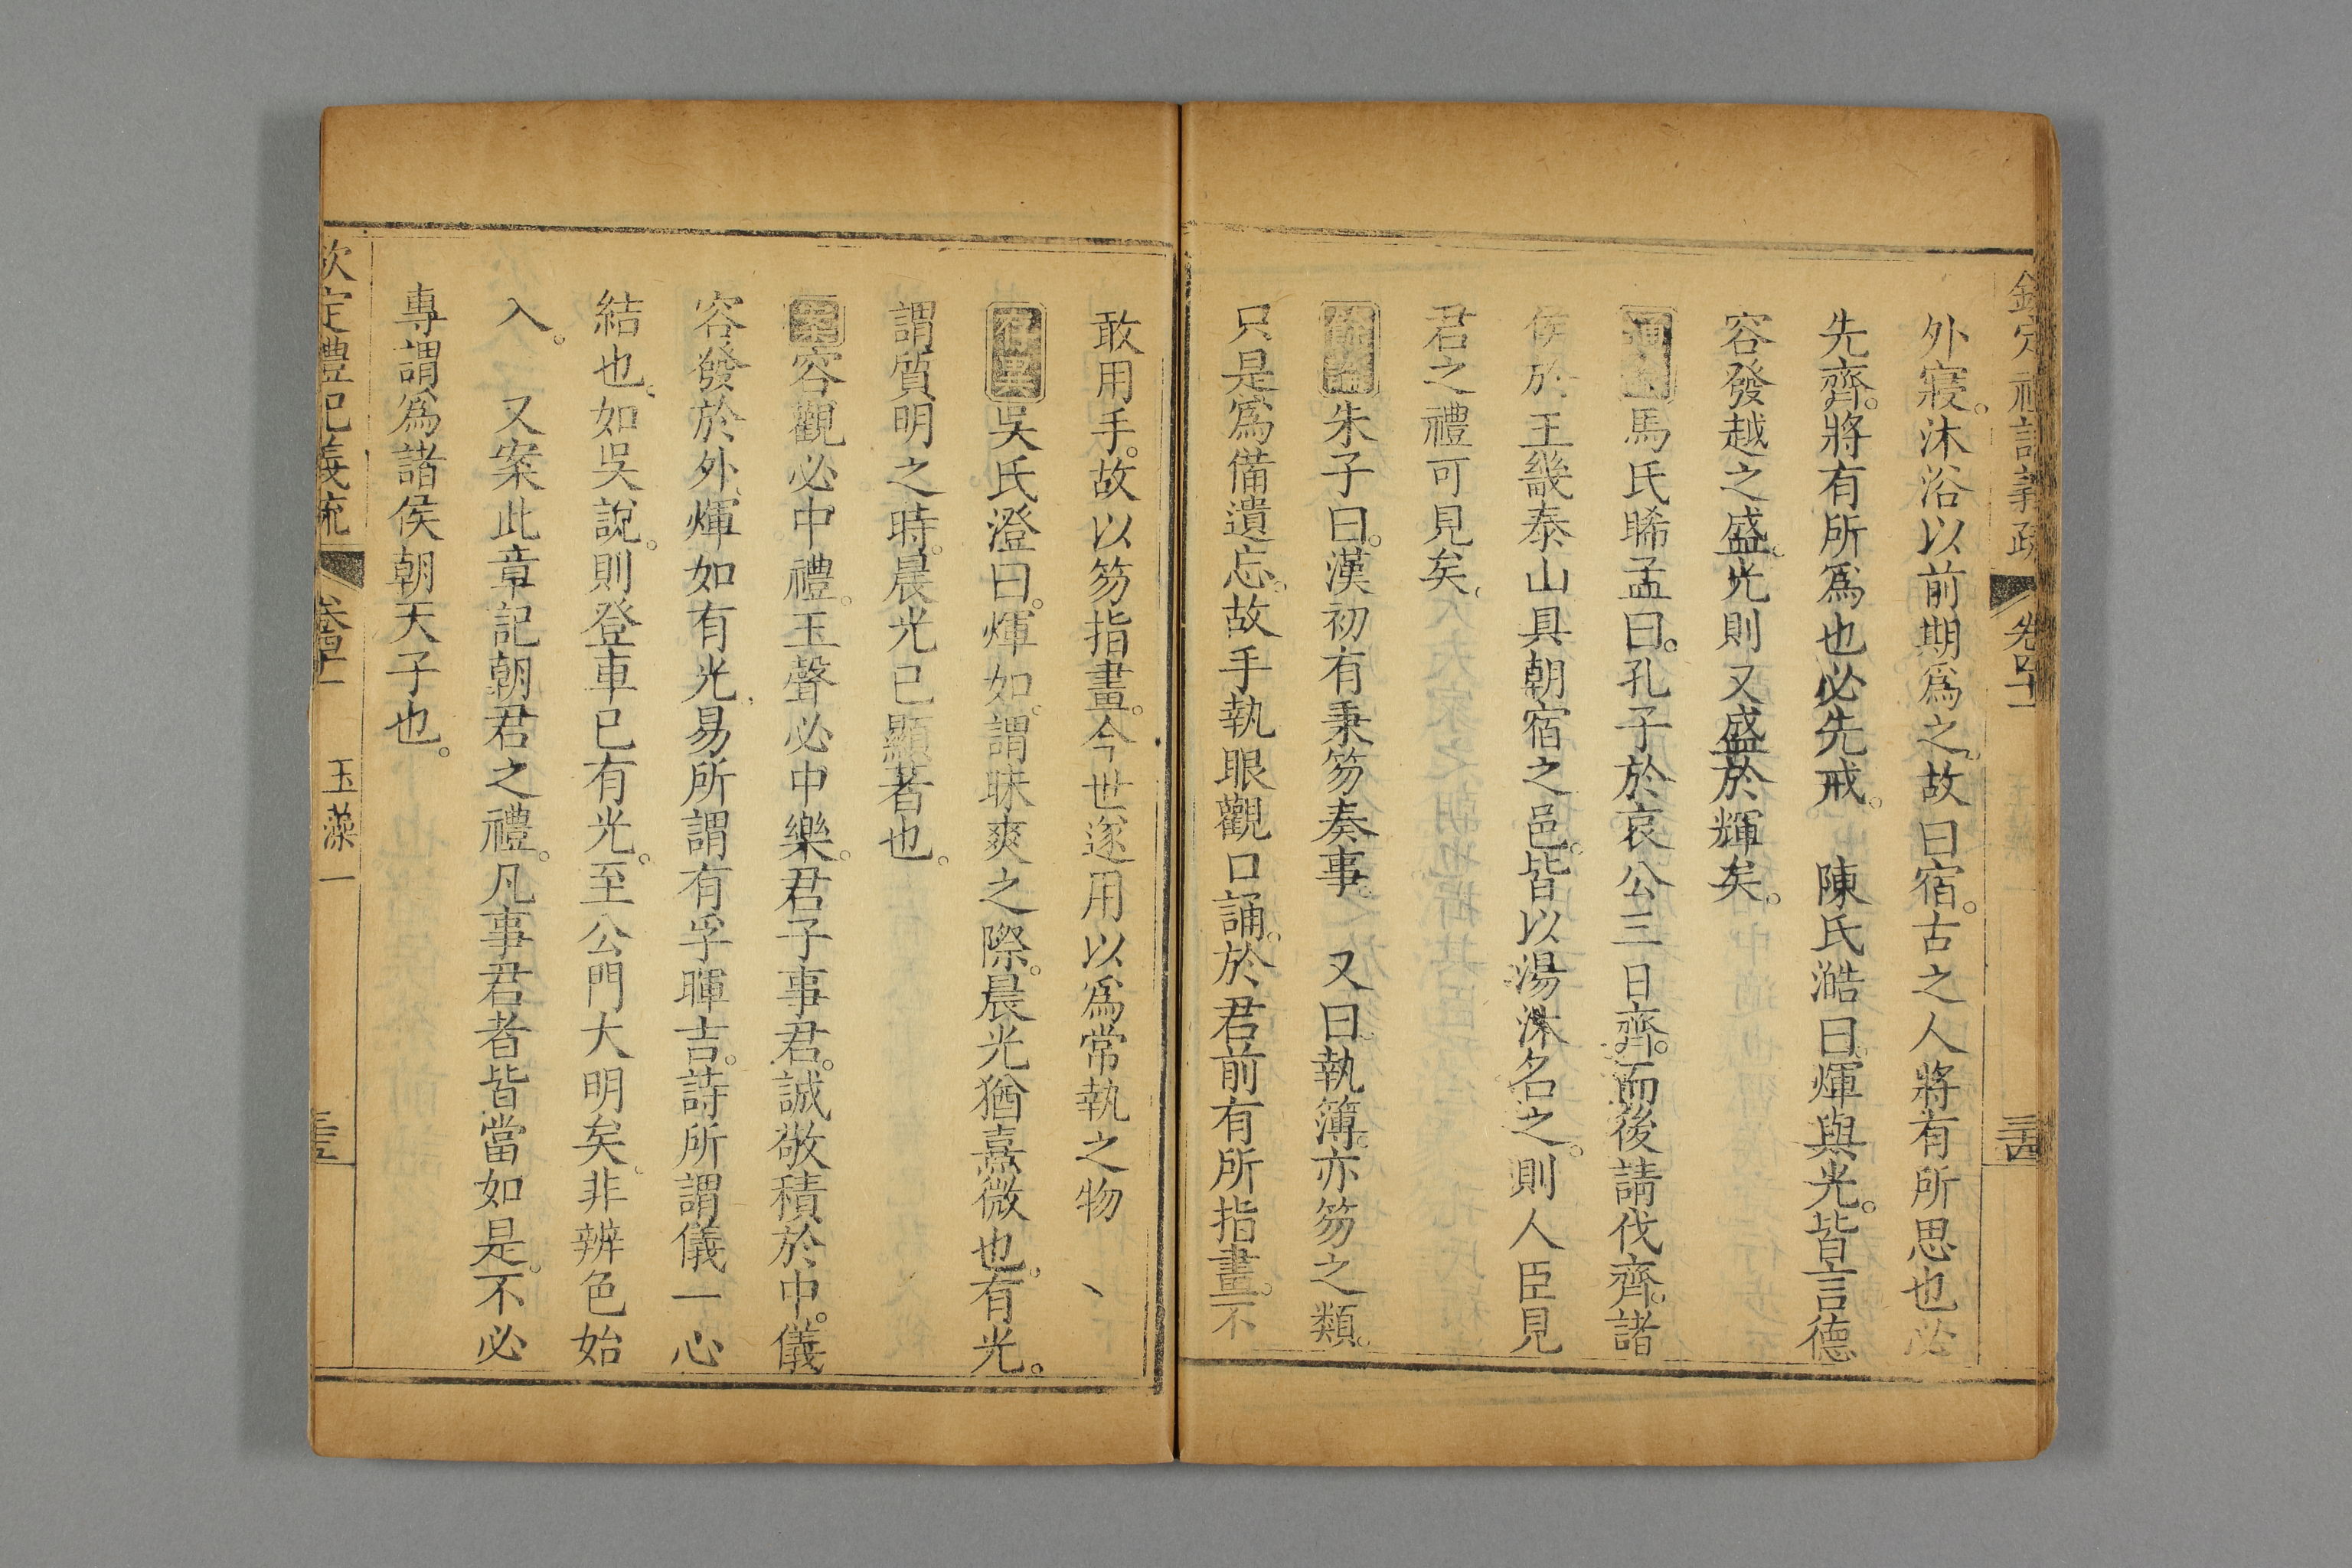 欽定禮記義疏 卷四十一 三十四
外寢。沐浴以前期爲之。故曰宿。古之人將有所思也必
先齊。將有所爲也必先戒。 陳氏澔曰。煇與光。皆言德
容發越之盛。光則又盛於輝矣。
通論馬氏晞孟曰。孔子於哀公三日齊。而後請伐齊。諸
侯於王畿泰山具朝宿之邑。皆以湯沐名之。則人臣見
君之禮可見矣。
餘論朱子曰。漢初有秉笏奏事。 又曰。執簿。亦笏之類。
只是爲備遺忘。故手執眼觀口誦。於君前有所指畫。不
敢用手。故以笏指畫。今世遂用以爲常執之物
存異吳氏澄曰。煇如。謂昧爽之際。晨光猶熹微也。有光。
謂質明之時。晨光已顯著也。
案容觀必中禮。玉聲必中樂。君子事君。誠敬積於中。儀
容發於外。煇如有光。易所謂有孚暉吉。詩所謂儀一心
結也。如吳說。則登車已有光。至公門大明矣。非辨色始
入。 又案此章記朝君之禮。凡事君者皆當如是。不必
專謂爲諸侯朝天子也。
欽定禮記義疏 卷四十一 玉藻一 三十五